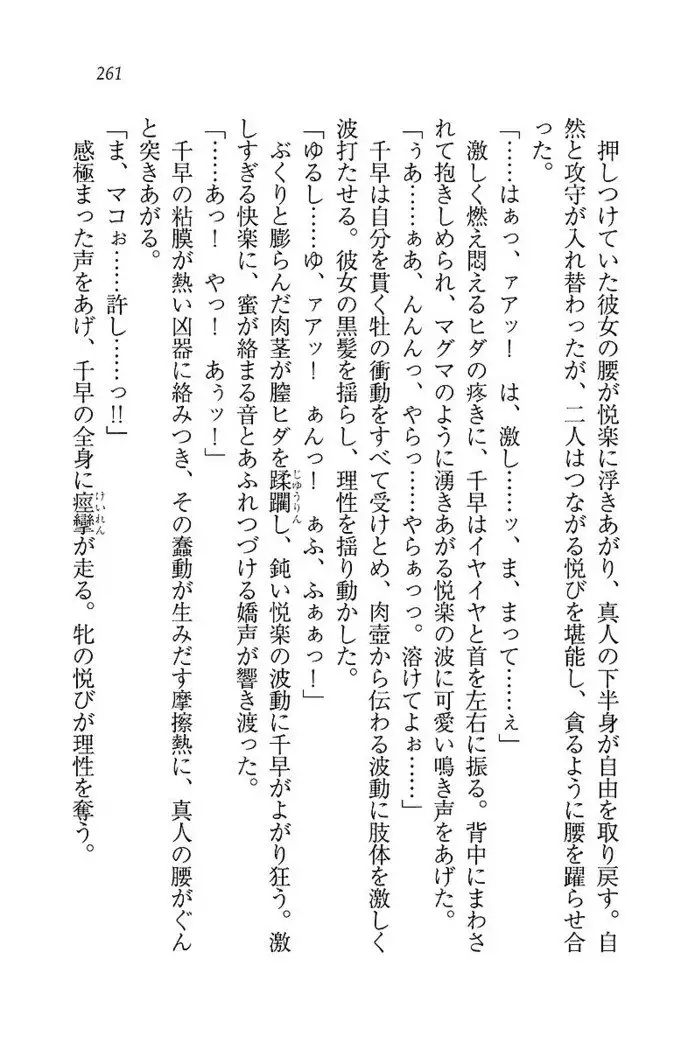 261
押しつけていた彼女の腰が悦楽に浮きあがり、真人の下半身が自由を取り戻す。自
然と攻守が入れ替わったが、二人はつながる悦びを堪能し、貪るように腰を躍らせ合
った。
「……はぁっ、ァアッ！　は、激し……ッ、ま、まって……ぇ」
激しく燃え悶えるヒダの疼きに、千早はイヤイヤと首を左右に振る。背中にまわさ
れて抱きしめられ、マグマのように湧きあがる悦楽の波に可愛い鳴き声をあげた。
「ぅあ……ぁあ、んんんっ、やらっ……やらぁっっ。溶けてよぉ……」
千早は自分を貫く牡の衝動をすべて受けとめ、肉壺から伝わる波動に肢体を激しく
波打たせる。彼女の黒髪を揺らし、理性を揺り動かした。
「ゆるし……ゆ、ァアッ！　ぁんっ！　ぁふ、ふぁぁっ！」
ぶくりと膨らんだ肉茎が膣ヒダを蹂躙し、鈍い悦楽の波動に千早がよがり狂う。激
じゅうりん
しすぎる快楽に、蜜が絡まる音とあふれつづける嬌声が響き渡った。
「……あっ！　やっ！　あぅッ！」
千早の粘膜が熱い凶器に絡みつき、その蠢動が生みだす摩擦熱に、真人の腰がぐん
と突きあがる。
「ま、マコぉ……許し……っ!!」
感極まった声をあげ、千早の全身に痙攣が走る。牝の悦びが理性を奪う。
けいれん